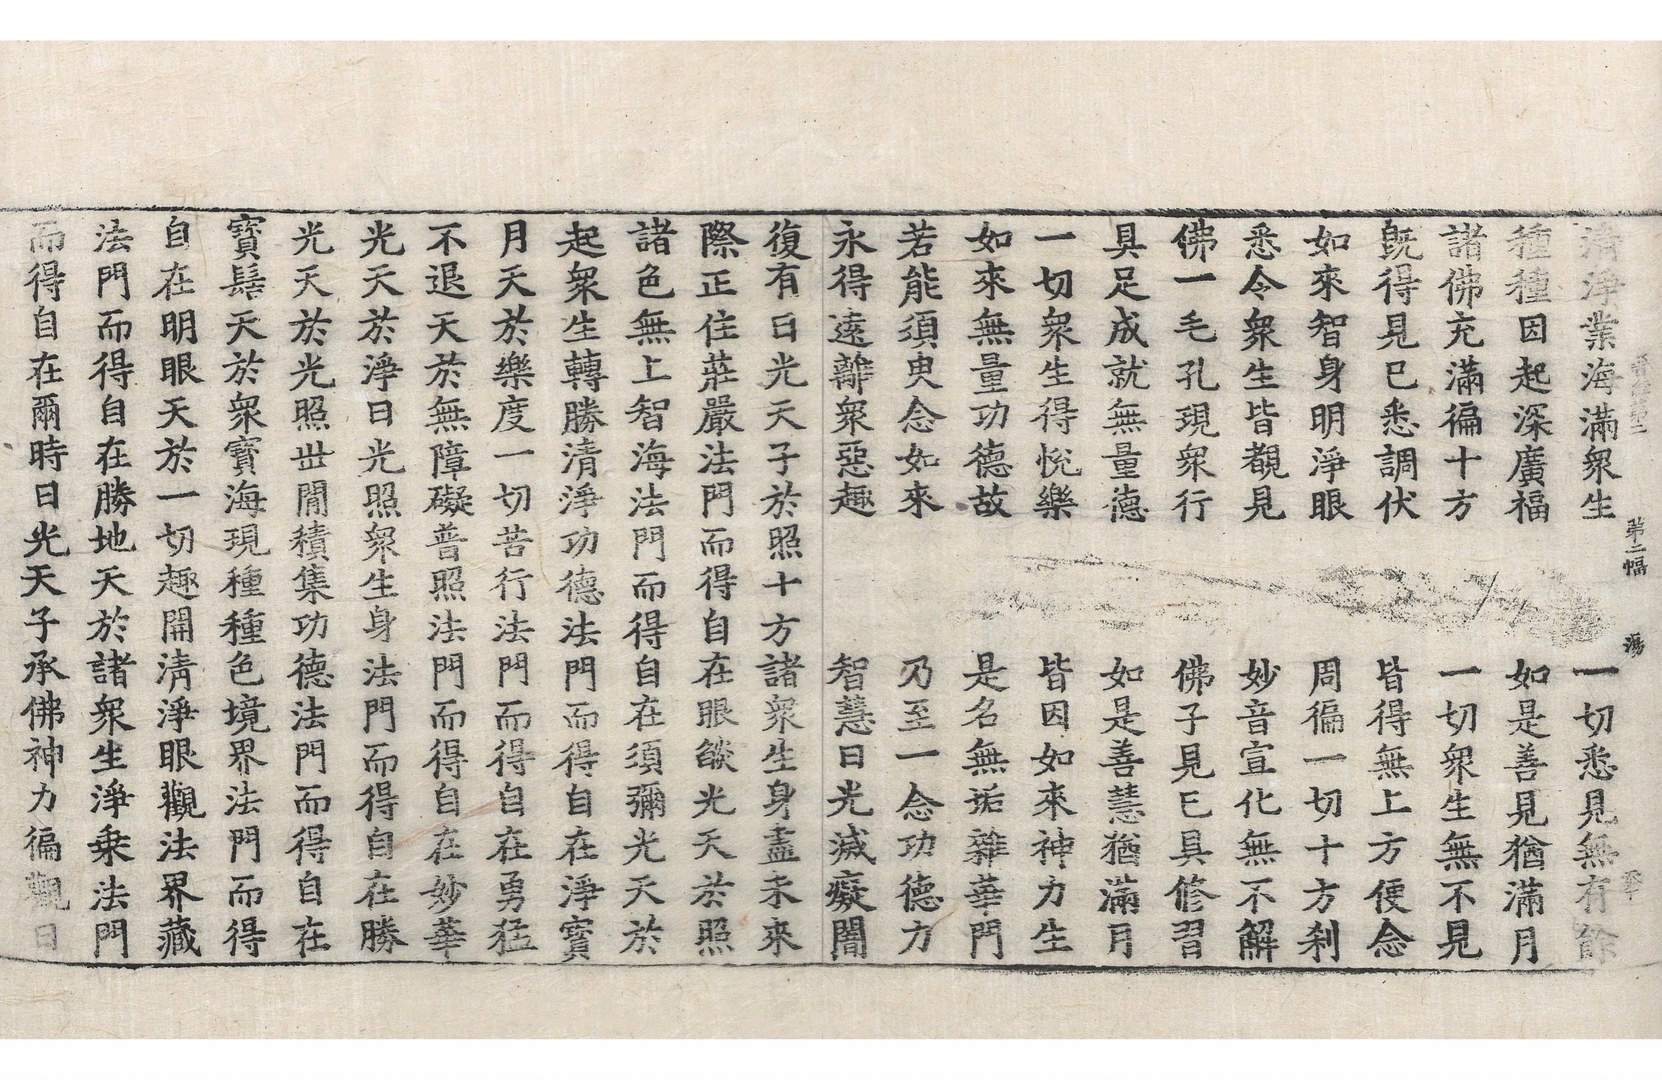 清淨業海滿衆生　一切悉見無有餘
種種因起深廣福　如是善見猶滿月
諸佛充滿徧十方　一切衆生無不見
旣得見已悉調伏　皆得無上方便念
如來智身明淨眼　周徧一切十方刹
悉令衆生皆覩見　妙音宣化無不解
佛一毛孔現衆行　佛子見已具修習
具足成就無量德　如是善慧猶滿月
一切衆生得悅樂　皆因如來神力生
如來無量功德故　是名無垢雜華門
若能須臾念如來　乃至一念功德力
永得遠離衆惡趣　智慧日光滅癡闇
復有日光天子於照十方諸衆生身盡未來
際正住莊嚴法門而得自在眼燄光天於照
諸色無上智海法門而得自在須彌光天於
起衆生轉勝清淨功德法門而得自在淨寶
月天於樂度一切苦行法門而得自在勇猛
不退天於無障礙普照法門而得自在妙華
光天於淨日光照衆生身法門而得自在勝
光天於光照世閒積集功德法門而得自在
寶髻天於衆寶海現種種色境界法門而得
自在明眼天於一切趣開淸淨眼觀法界藏
法門而得自在勝地天於諸衆生淨乗法門
而得自在爾時日光天子承佛神力徧觀日
第二幅　湯